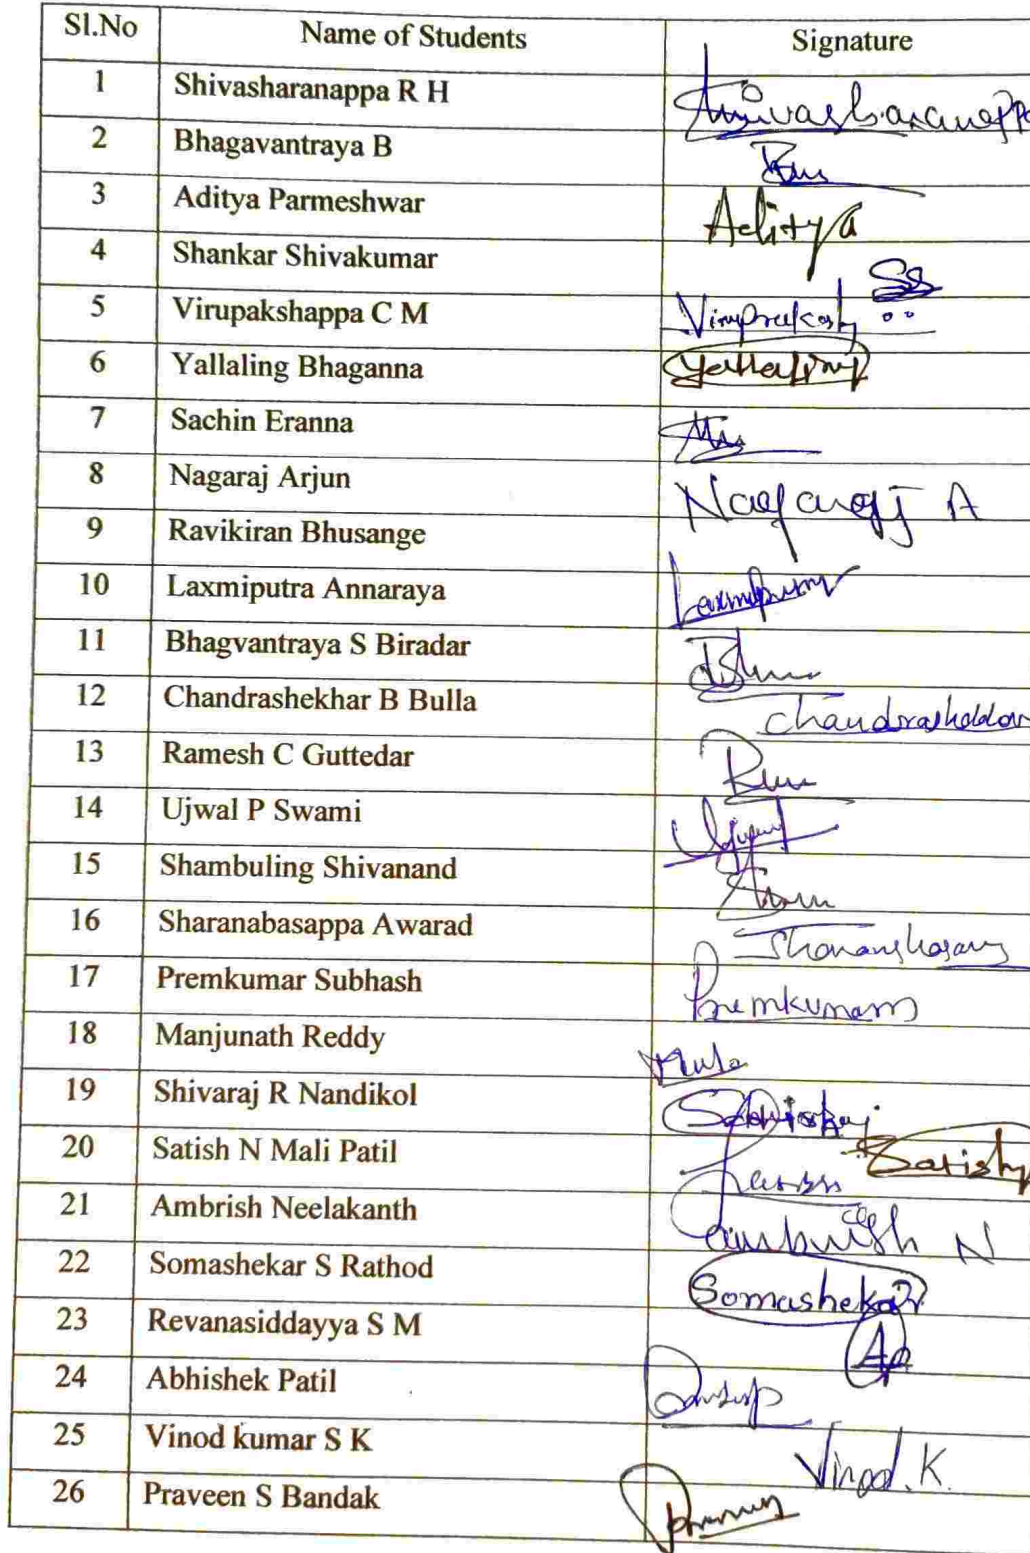 Sl.No Name of Students Signature
1 Shivasharanappa R H Shivasharanappa
2 Bhagavantraya B
3 Aditya Parmeshwar Aditya
4 Shankar Shivakumar SS
5 Virupakshappa C M
6 Yallaling Bhaganna Yallaling
7 Sachin Eranna
8 Nagaraj Arjun Nagaraj A
9 Ravikiran Bhusange
10 Laxmiputra Annaraya
11 Bhagvantraya S Biradar
12 Chandrashekhar B Bulla
13 Ramesh C Guttedar
14 Ujwal P Swami
15 Shambuling Shivanand
16 Sharanabasappa Awarad
17 Premkumar Subhash
18 Manjunath Reddy
19 Shivaraj R Nandikol
20 Satish N Mali Patil Satish
21 Ambrish Neelakanth
22 Somashekar S Rathod Somashekar
23 Revanasiddayya S M
24 Abhishek Patil
25 Vinod kumar S K Vinod.K.
26 Praveen S Bandak